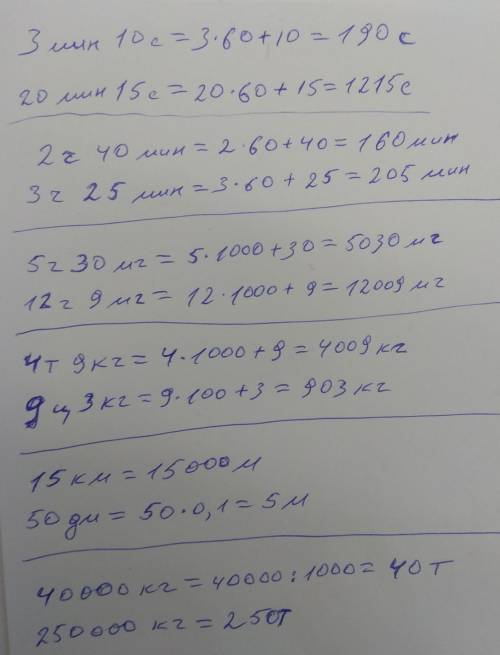 3 мин 10 с = 3·60+10 = 190 с
20 мин 15 с = 20·60+15 = 1215 с
2 ч 40 мин = 2·60+40 = 160 мин
3 ч 25 мин = 3·60+25 = 205 мин
5 г 30 мг = 5·1000+30 = 5030 мг
12 г 9 мг = 12·1000+9 = 12009 мг
4т 9кг = 4·1000+9 = 4009 кг
9 ц 3 кг = 9·100+3 = 903 кг
15 км = 15000 м
50 дм = 50·0,1 = 5 м
40000 кг = 40000:1000 = 40 т
250000 кг = 250т